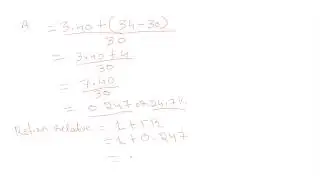 A = 3.40 + (34 - 30)
30
= 3.40 + 4
30
= 7.40
30
= 0.247 or 24.7%
Return relative = 1 + TR
= 1 + 0.247
=